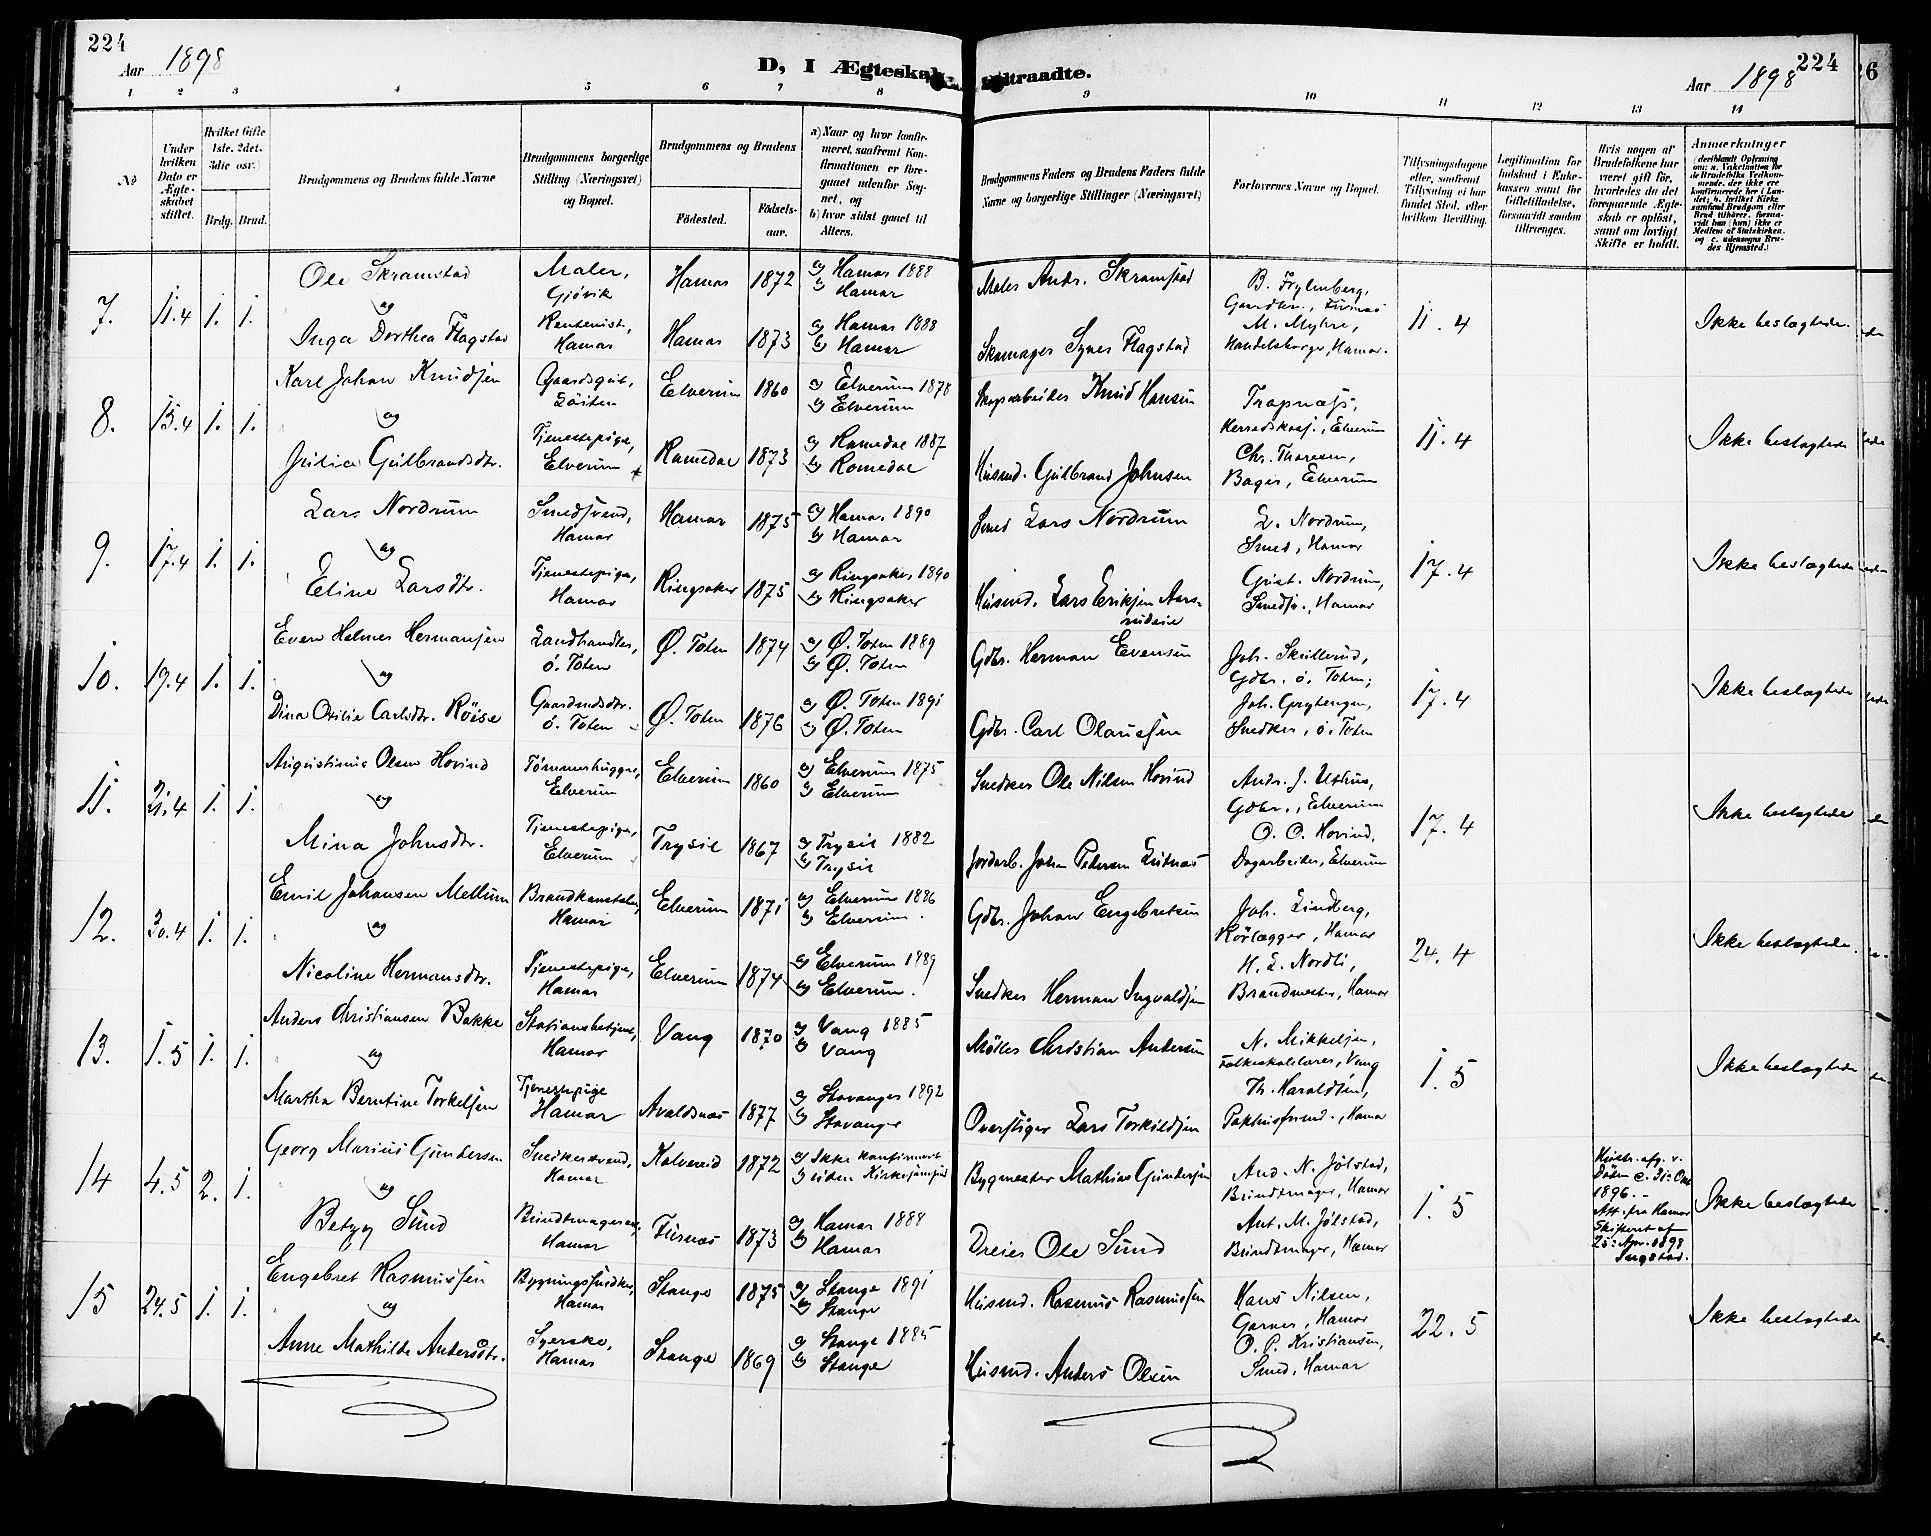 224
Aar 1898
D, I Ægteskab Indtraadte.
Aar 1898
224
1 2 3 4 5 6 7 8 9 10 11 12 13 14
No
Under hvilken Dato er Ægteskabet stiftet.
Hvilket Gifte 1ste. 2det. 3die osv.
Brdg. Brud.
Brudgommens og Brudens fulde Navne
Brudgommens borgerlige Stilling (Næringsvei) og Bopæl.
Brudgommens og Brudens
Födested.
Födselsaar.
a) Naar og hvor konfirmeret, saafremt Konfirmationen er foregaaet udenfor Sognet, og
b) hvor sidst gaaet til Alters.
Brudgommens Faders og Brudens Faders fulde Navne og borgerlige Stillinger (Næringsvei)
Forlovernes Navne og Bopæl.
Tillysningsdagene eller, saafremt Tillysning ei har fundet Sted, efter hvilken Bevilling.
Legitimation for Indskud i Enkekassen samt for Giftetilladelse, forsaavidt saadan tiltrænges.
Hvis nogen af Brudefolkene har været gift før, hvorledes da det foregaaende Ægteskab er oplöst, samt om lovligt Skifte er holdt.
Anmærkninger
7. 11.4 1. 1.
Ole Skramstad
og
Inga Dorthea Flagstad
Maler,
Gjövik
Hamar 1872
a) Hamar 1888
b) Hamar
Hamar
Hamar 1873
a) Hamar 1888
b) Hamar
Maler Andr. Skramstad
Skomager Syver Flagstad
M. Myhre,
Handelsborger, Hamar.
11. 4
Ikke beslægtede.
8. 15.4 1. 1.
Karl Johan Knudsen
og
Julia Gulbrandsdtr.
Gaardsgut,
Löiten
Elverum 1860
a) Elverum 1878
b) Elverum
Tjenestepige,
Elverum
Romedal 1873
a) Romedal 1887
b) Romedal
Skogsarbeider Knud Hansen
Husmd. Gulbrand Johnsen
Herredskass., Elverum
Chr. Thoresen,
Bager, Elverum
11. 4
Ikke beslægtede
9. 17.4 1. 1.
Lars Nordrum
og
Eline Larsdtr.
Smedsvend,
Hamar
Hamar 1875
a) Hamar 1890
b) Hamar
Tjenestepige,
Hamar
Ringsaker 1875
a) Ringsaker 1890
b) Ringsaker
Smed Lars Nordrum
Husmd. Lars Eriksen
L. Nordrum,
Smed, Hamar
Gust. Nordrum,
Smedsv., Hamar
17. 4
Ikke beslægtede
10. 19.4 1. 1.
Even Helmer Hermansen
og
Dina Otilie Carlsdtr. Röise
Landhandler,
ö. Toten
Ø. Toten 1874
a) Ø. Toten 1889
b) Ø. Toten
Gaardmdsdtr.
ö. Toten
Ø. Toten 1876
a) Ø. Toten 1891
b) Ø. Toten
Gdbr. Herman Evensen
Gdbr. Carl Olaussen
Joh. Skillerud,
Gdbr. ö. Toten;
Joh. Grytengen,
Snedker, ö. Toten
17. 4
Ikke beslægtede
11. 21.4 1. 1.
Augustinus Olsen Hovind
og
Mina Johnsdtr.
Tömmerhugger,
Elverum
Elverum 1860
a) Elverum 1875
b) Elverum
Tjenestepige,
Elverum
Trysil 1867
a) Trysil 1882
b) Trysil
Snedker Ole Nilsen Hovind
Jordarb. John Petersen Lutnæs
Andr. J. Uthus,
Gdbr., Elverum
O. O. Hovind,
Dagarbeider, Elverum
17. 4
Ikke beslægtede
12. 30.4 1. 1.
Emil Johansen Mellum
og
Nicoline Hermansdtr.
Brandkonstabel,
Hamar
Elverum 1871
a) Elverum 1886
b) Elverum.
Tjenestepige,
Hamar
Elverum 1874
a) Elverum 1889
b) Elverum.
Gdbr. Johan Engebretsen
Snedker Herman Ingvaldsen
Joh. Lindberg,
Rörlægger, Hamar
H. L. Nordli,
Brandmester, Hamar
24. 4
Ikke beslægtede.
13. 1.5 1. 1.
Anders Christiansen Bakke
og
Martha Berntine Torkelsen
Stationsbetjent,
Hamar
Vang 1870
a) Vang 1885
b) Vang
Tjenestepige
Hamar
Avaldsnæs 1877
a) Stavanger 1892
b) Stavanger
Møller Christian Andersen
Overstiger Lars Torkildsen
N. Mikkelsen,
Folkeskolelærer, Vang
Th. Haraldsen,
Pakhusformd., Hamar
1. 5
Ikke beslægtede
14 4.5 2. 1.
Georg Marius Gundersen
og
Betzy Sund
Snedkersvend,
Hamar
Kolvereid 1872
a) Ikke konfirmeret
b) uden Kirkesamfund
Hamar
Furnæs 1873
a) Hamar 1888
b) Hamar
Bygmester Mathias Gundersen
Dreier Ole Sund
And. N. Jölstad,
Bundtmager, Hamar
Ant. M. Jölstad,
Bundtmager, Hamar
1. 5
1896.
Att. fra Hamar
Skifteret af
25: Apr. 1898
Ikke beslægtede
15 24.5 1. 1.
Engebret Rasmussen
og
Anne Mathilde Andersdtr.
Bygningssnedker,
Hamar
Stange 1875
a) Stange 1891
b) Stange
Syerske,
Hamar
Stange 1869
a) Stange 1885
b) Stange
Husmd. Rasmus Rasmussen
Husmd. Anders Olsen
Hans Nilsen,
Garver, Hamar
O. P. Kristiansen,
Smed, Hamar
22. 5
Ikke beslægtede